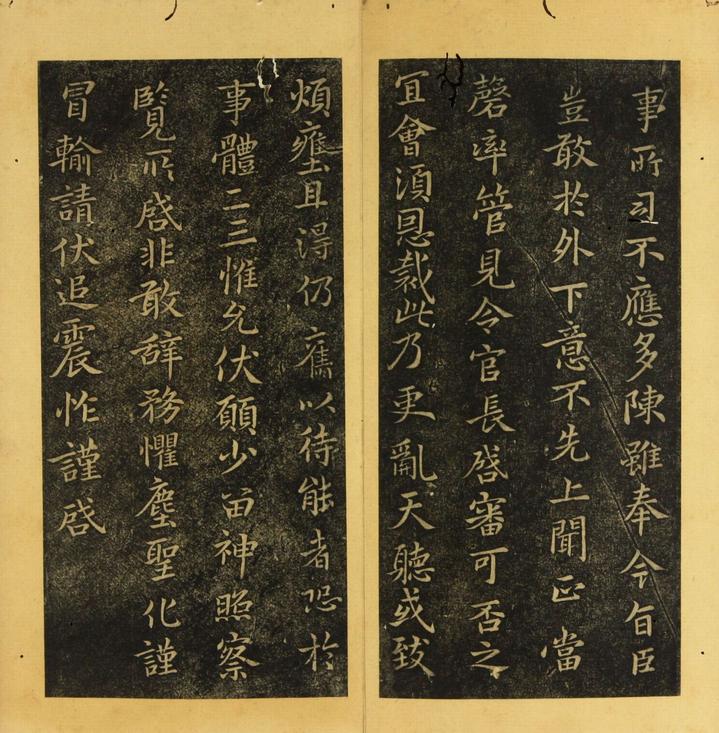 事所司不應多陳雖奉令旨臣
豈敢於外下意不先上聞正當
罄率管見令官長啓審可否之
宜會須恩裁此乃更亂天聽或致
煩壅且得仍舊以待能者恐於
事體二三惟允伏願少留神照察
覽所啓非敢辞務懼塵聖化謹
冒輸請伏追震怍謹啓